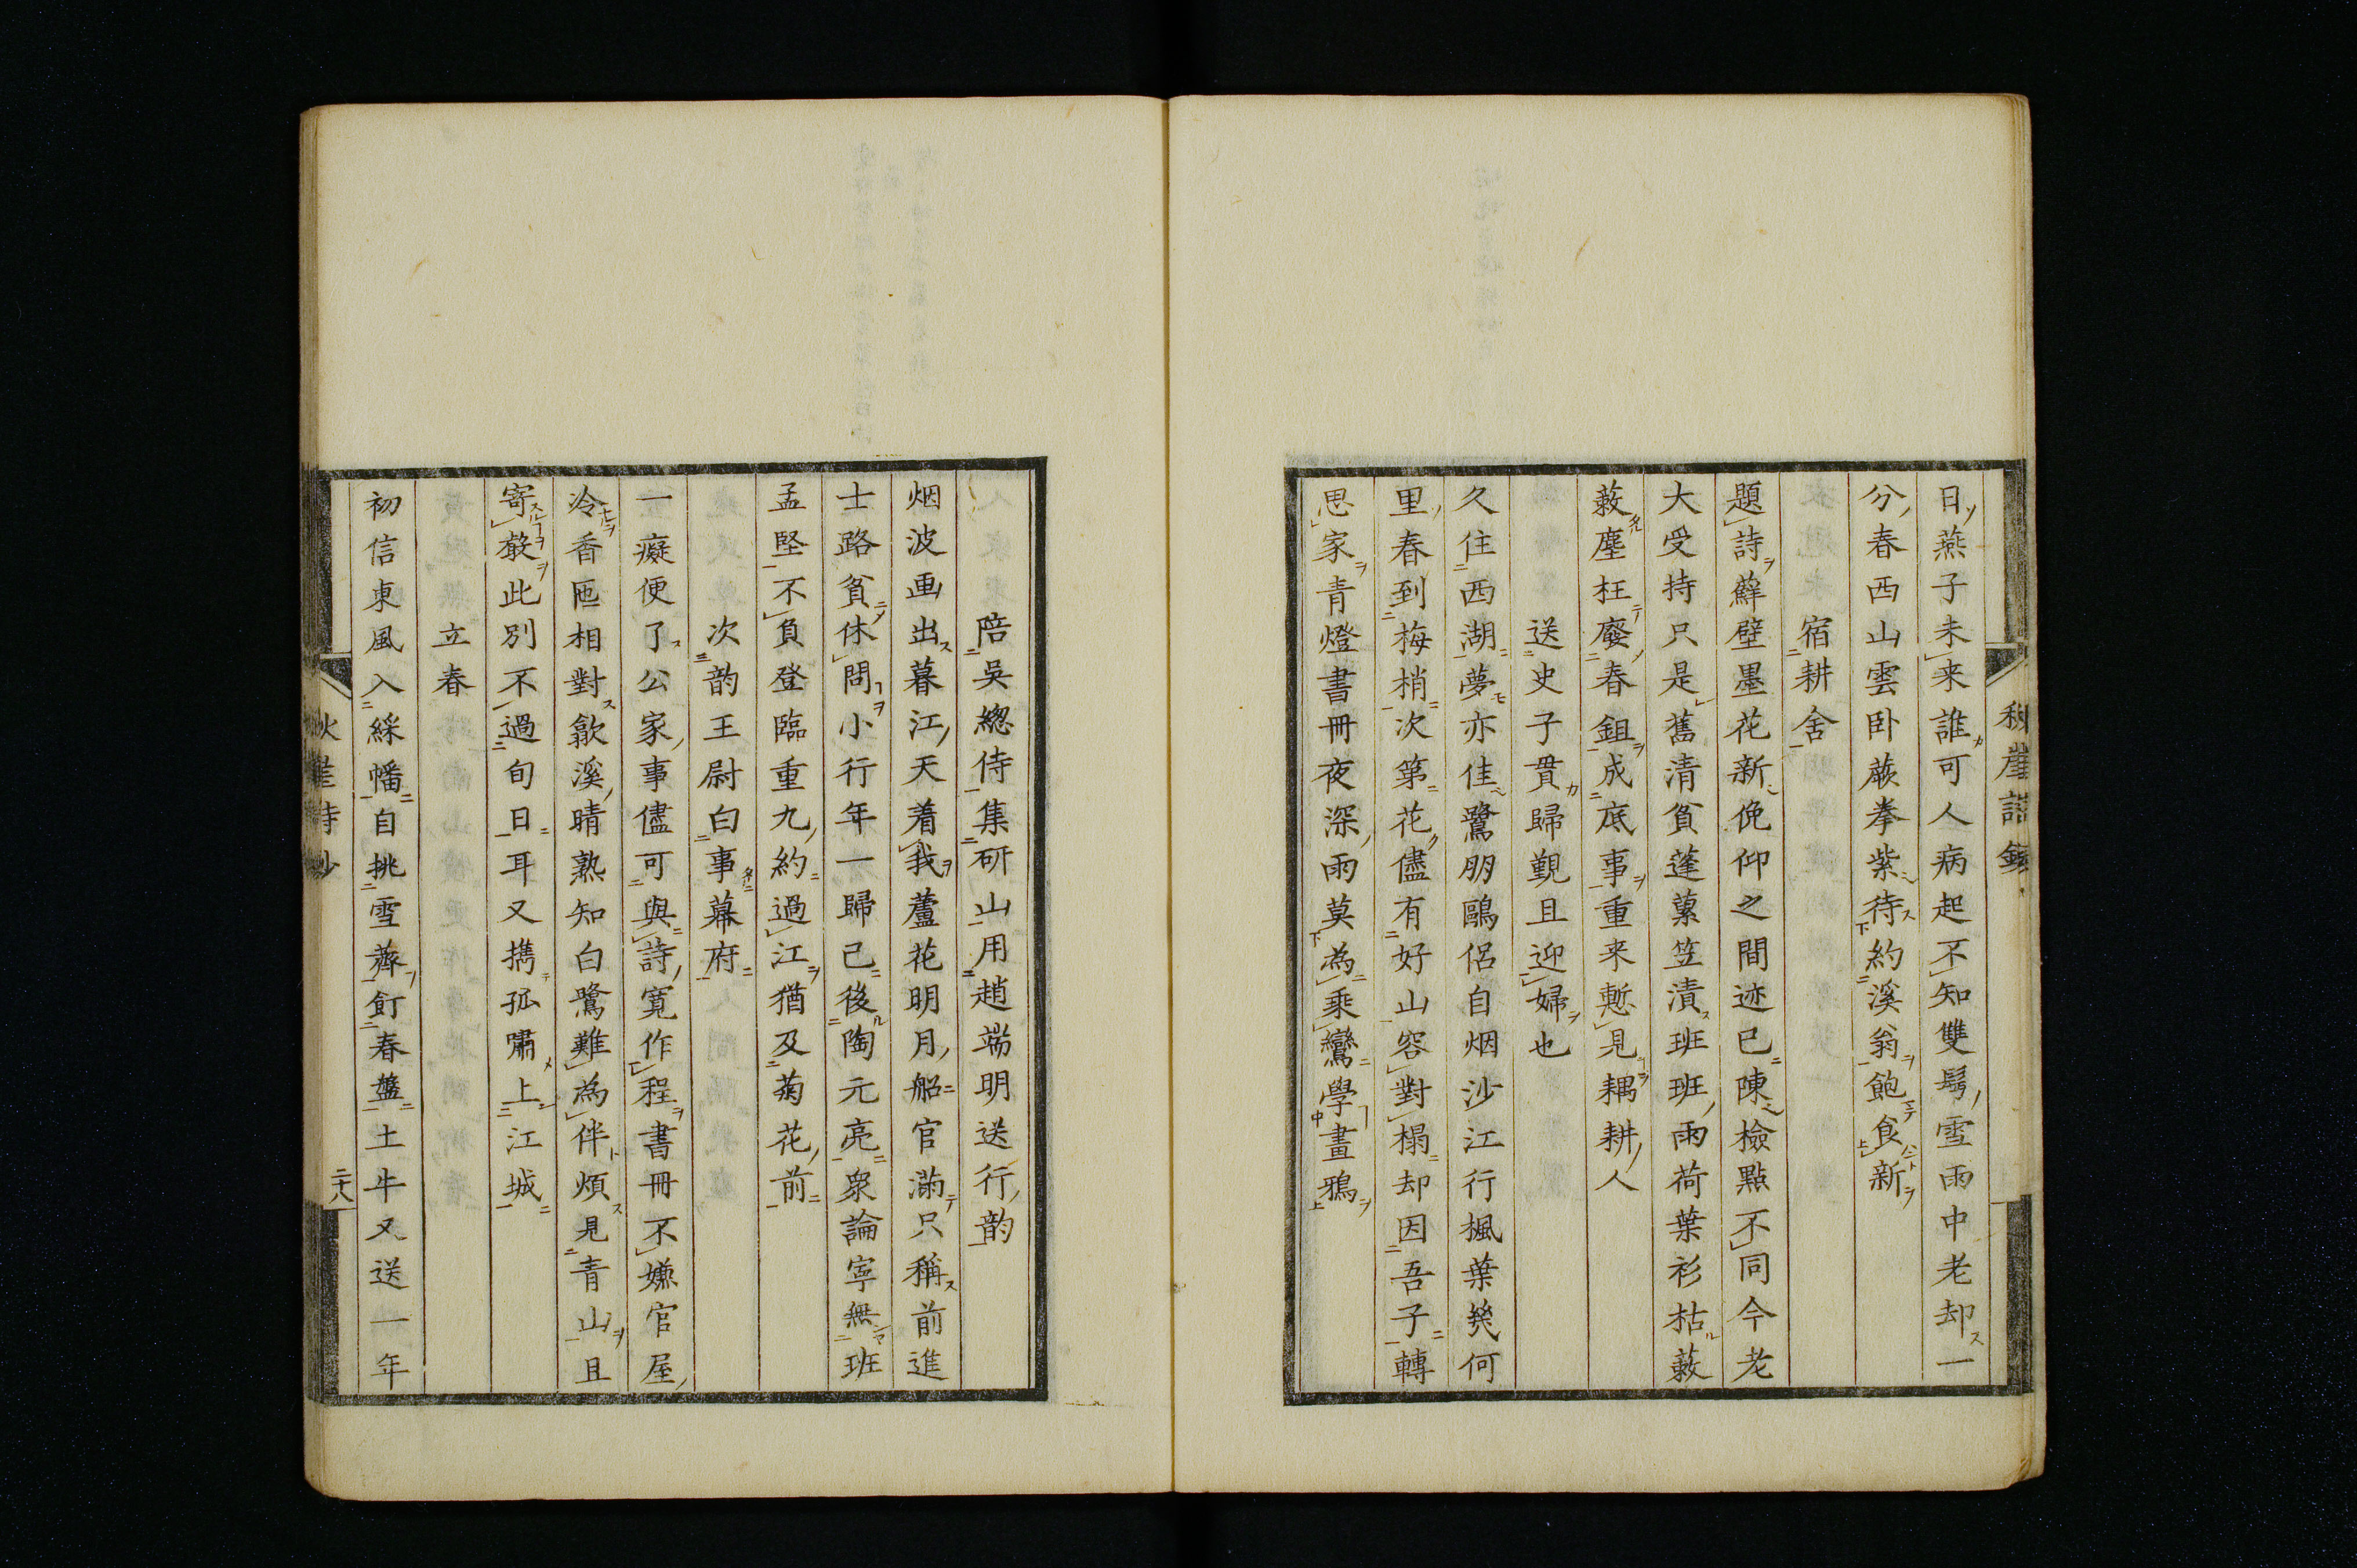 秋崖詩鈔
日燕子未来誰可人病起不知雙鬂雪雨中老却一
分春西山雲卧蕨拳紫待約溪翁飽食新
宿耕舎
題詩蘚壁墨花新俛仰之間迹已陳檢點不同今老
大受持只是舊清貧蓬蔂笠漬班班雨荷葉衫枯蔌
蔌塵枉廢春鉏成底事重来慙見耦耕人
送史子貫歸覲且迎婦也
久住西湖夢亦佳鷺朋鷗侶自烟沙江行楓葉㡬何
里春到梅梢次第花儘有好山容對榻却因吾子轉
思家青燈書冊夜深雨莫為乘鸞學畫鴉
陪吳緫侍集研山用趙端明送行韵
烟波画出暮江天着我蘆花明月船官滿只稱前進
士路貧休問小行年一歸已後陶元亮衆論寧無班
孟堅不負登臨重九約過江猶及菊花前
次韵王尉白事幕府
一癡便了公家事儘可與詩寛作程書冊不嫌官屋
冷香匜相對歙溪晴熟知白鷺難為伴煩見青山且
寄聲此別不過旬日耳又攜孤嘯上江城
立春
初信東風入綵幡自挑雪薺飣春盤土牛又送一年
秋崖詩鈔
二十八